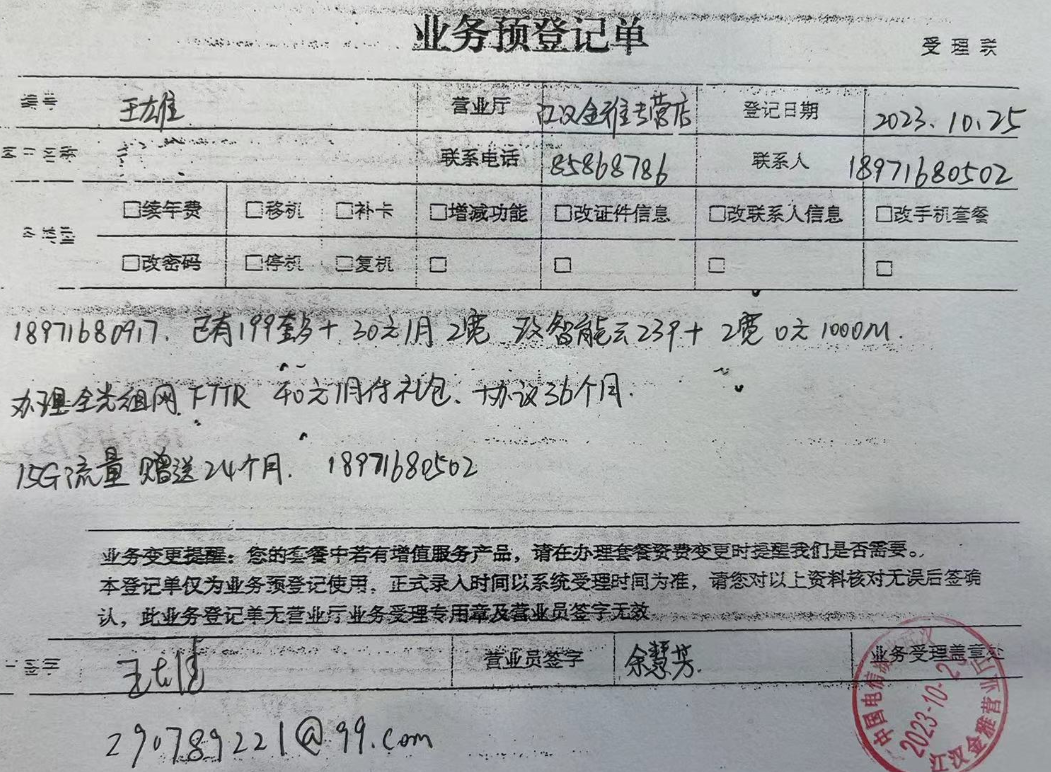 业务预登记单
受理联
编号 王雄 营业厅 江汉金雅专营店 登记日期 2023.10.25
联系电话 85868786 联系人 18971680502
□续年费 □移机 □补卡 □增减功能 □改证件信息 □改联系人信息 □改手机套餐
□改密码 □停机 □复机 □ □ □ □
18971680917. 已有199套餐+30元1月2宽 改智能云239+2宽0元1000M.
办理全光组网FTTR 40元1月付礼包、+协议36个月.
15G流量赠送24个月. 18971680502
业务变更提醒：您的套餐中若有增值服务产品，请在办理套餐资费变更时提醒我们是否需要。
本登记单仅为业务预登记使用，正式录入时间以系统受理时间为准，请您对以上资料核对无误后签确
认，此业务登记单无营业厅业务受理专用章及营业员签字无效
营业员签字 余慧芳. 业务受理盖章处
中国电信
2023-10-2
江汉金雅营业厅
290789221@99.com